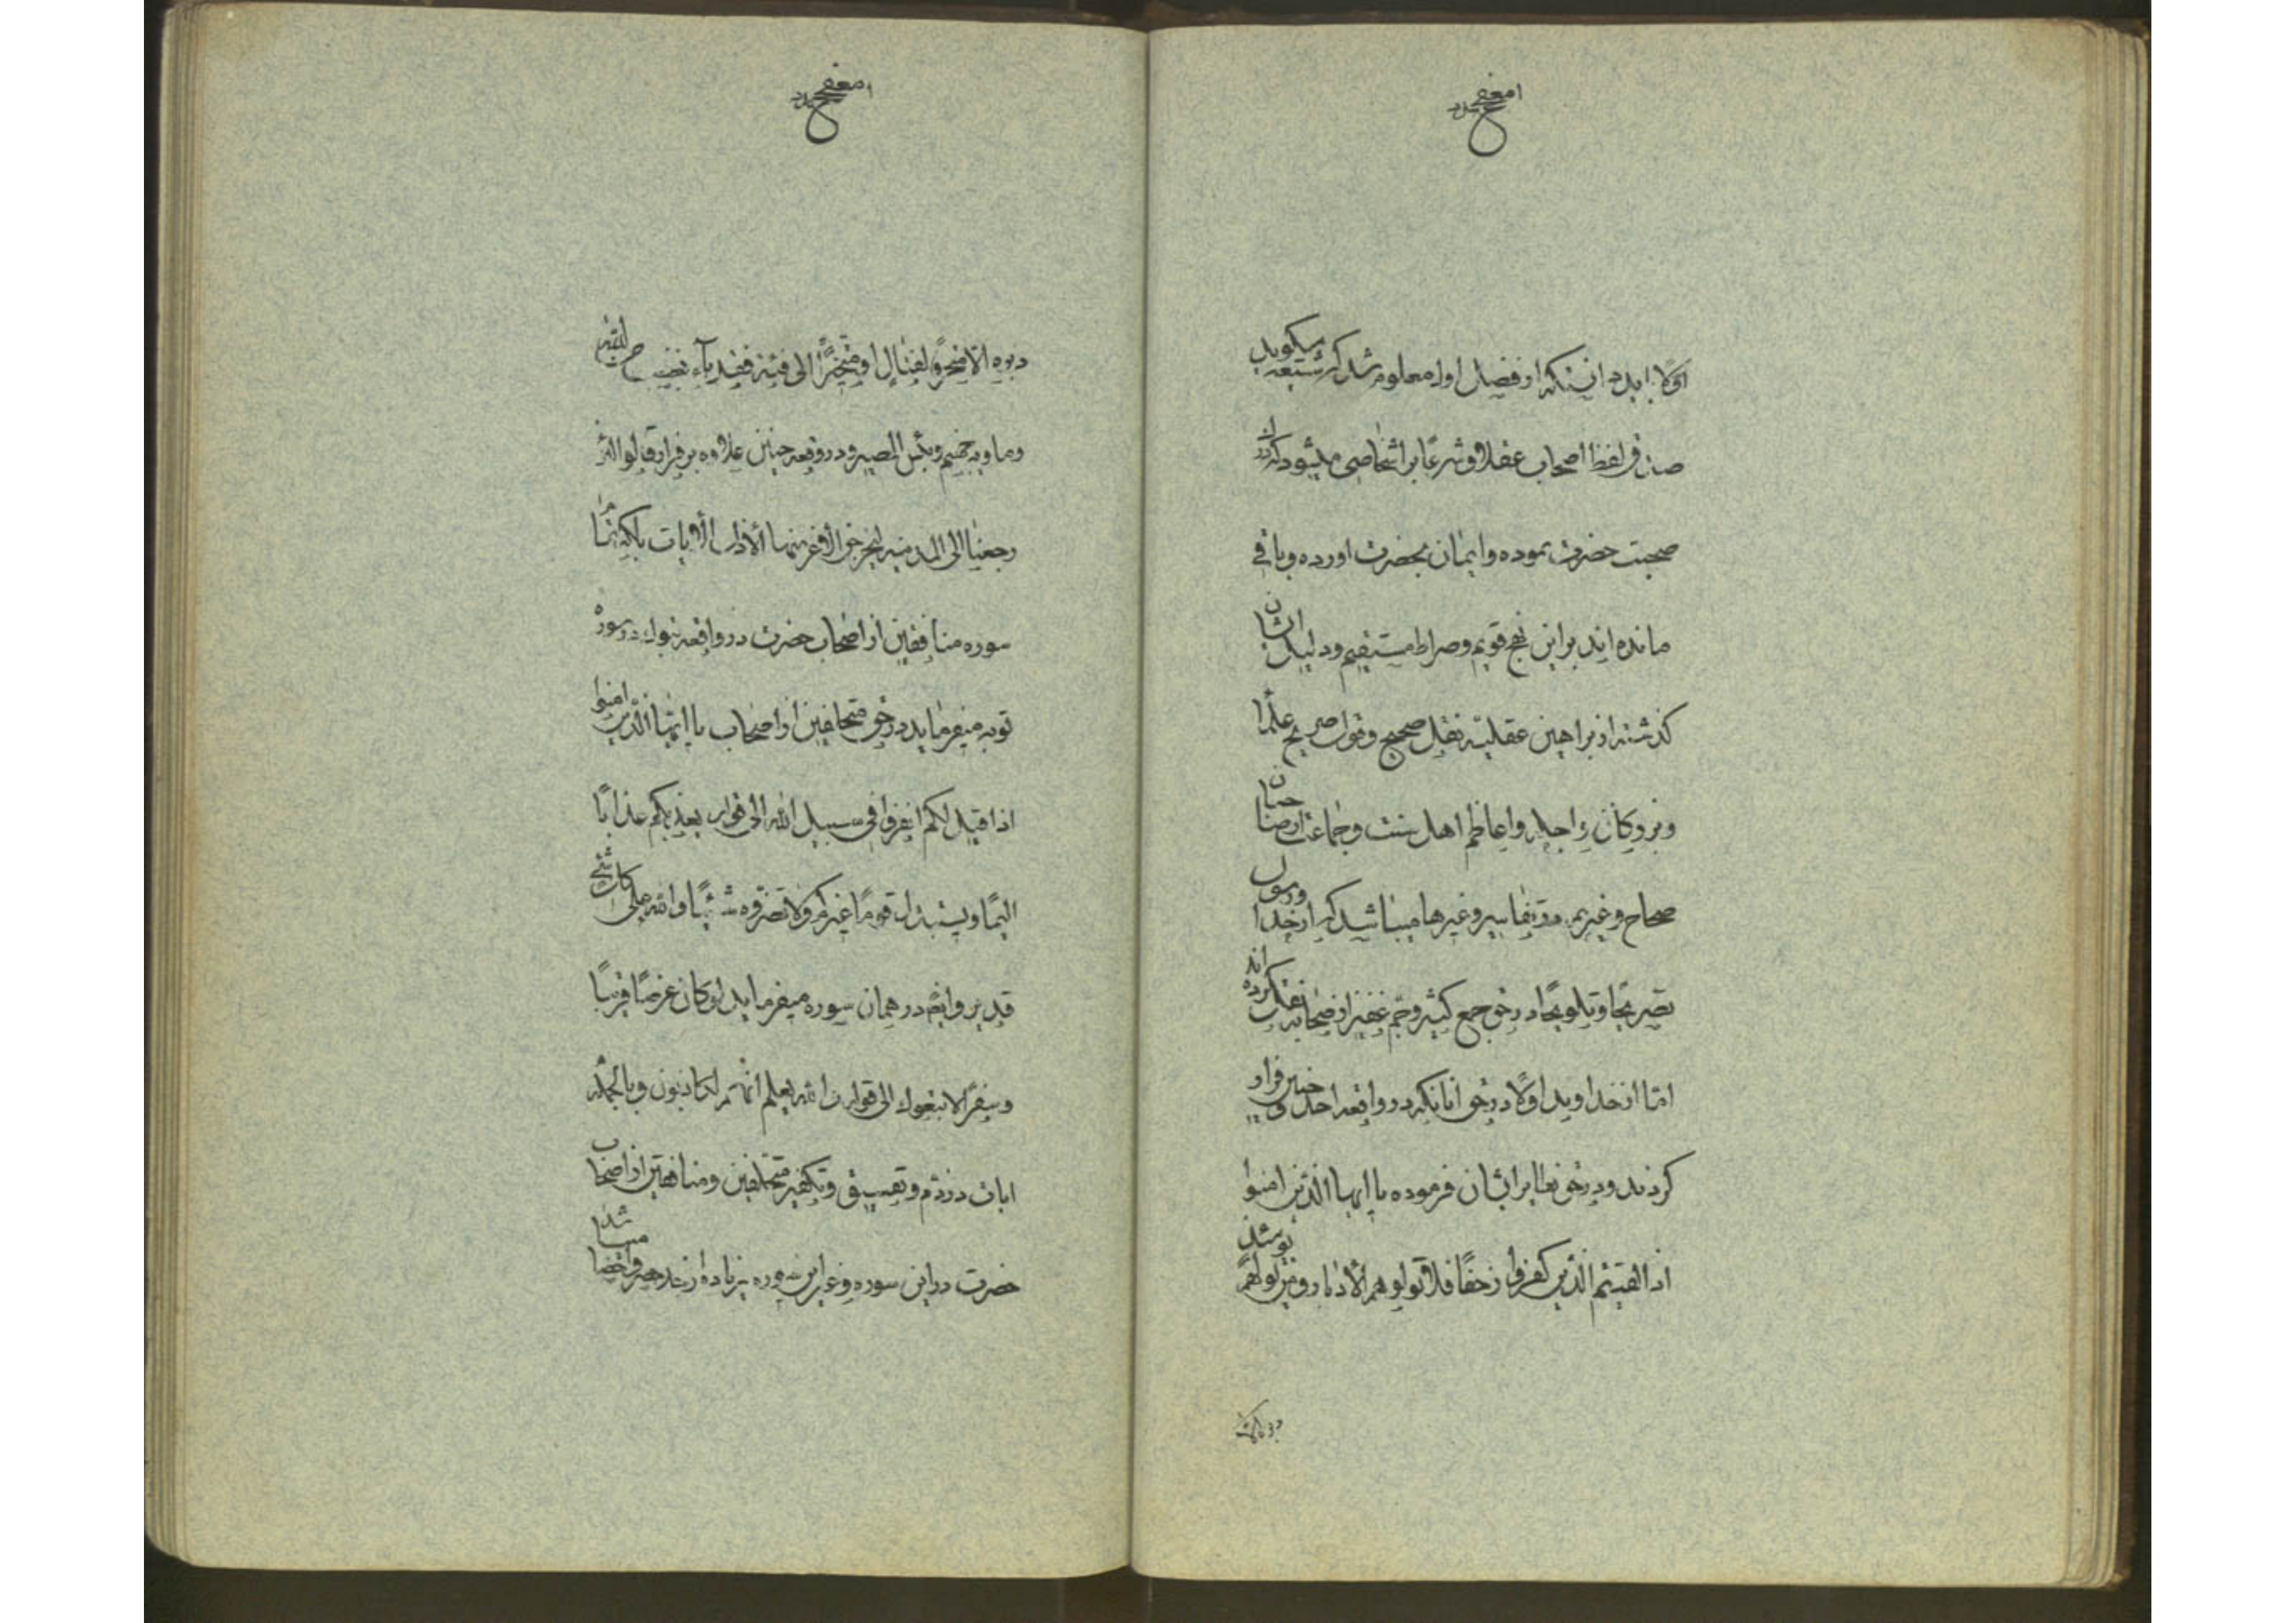 اولا باید دانست که از فصل اول معلوم شد که شیعه میگوید
صدق لفظ اصحاب عقلا و شرعا بر اشخاصی میشود که در
صحبت حضرت بوده و ایمان بحضرت اورده و باقی
مانده اند براین نهج قویم و صراط مستقیم و دلیل ایشان
گذشته از براهین عقلیه نقل صحیح و قول صریح علما
و بزرگان و اجله و اعاظم اهل سنت و جماعت از صاحبان
صحاح و غیرهم و تفاسیر و غیرها میباشد که از خدا و رسول
تصریحا و تلویحا در حق جمع کثیر و جم غفیر از صحابه نقل کرده اند
اما از خداوند اولا در حق انانکه در واقعه احد و حنین فرار
کردند و در حق ایشان فرموده یا ایها الذین امنوا
اذا لقیتم الذین کفروا زحفا فلا تولوهم الأدبار و من یولهم یومئذ
دبره الا متحرفا لقتال او متحیزا الی فئة فقد باء بغضب من الله
وماویه جهنم وبئس المصیر و در وقعه حنین علاوه بر فرار قالوا لئن
رجعنا الی المدینه لیخرجن الأعز منها الأذل الأیات بلکه تمام
سوره منافقین از اصحاب حضرت در واقعه تبوك در سوره
توبه میفرماید در حق متخلفین از اصحاب یا ایها الذین امنوا
اذا قیل لکم انفروا فی سبیل الله الی قوله یعذبکم عذابا
الیما ویستبدل قوما غیرکم ولا تضروه شیئا والله علی کل شیء
قدیر و ایضا در همان سوره میفرماید لو کان عرضا قریبا
وسفرا لاتبعوك الی قوله والله یعلم انهم لکاذبون و بالجمله
ایات در ذم و تفسیق و تکفیر متخلفین و منافقین از اصحاب
حضرت در این سوره و غیر این سوره زیاده از حد حصر و احصا میباشد